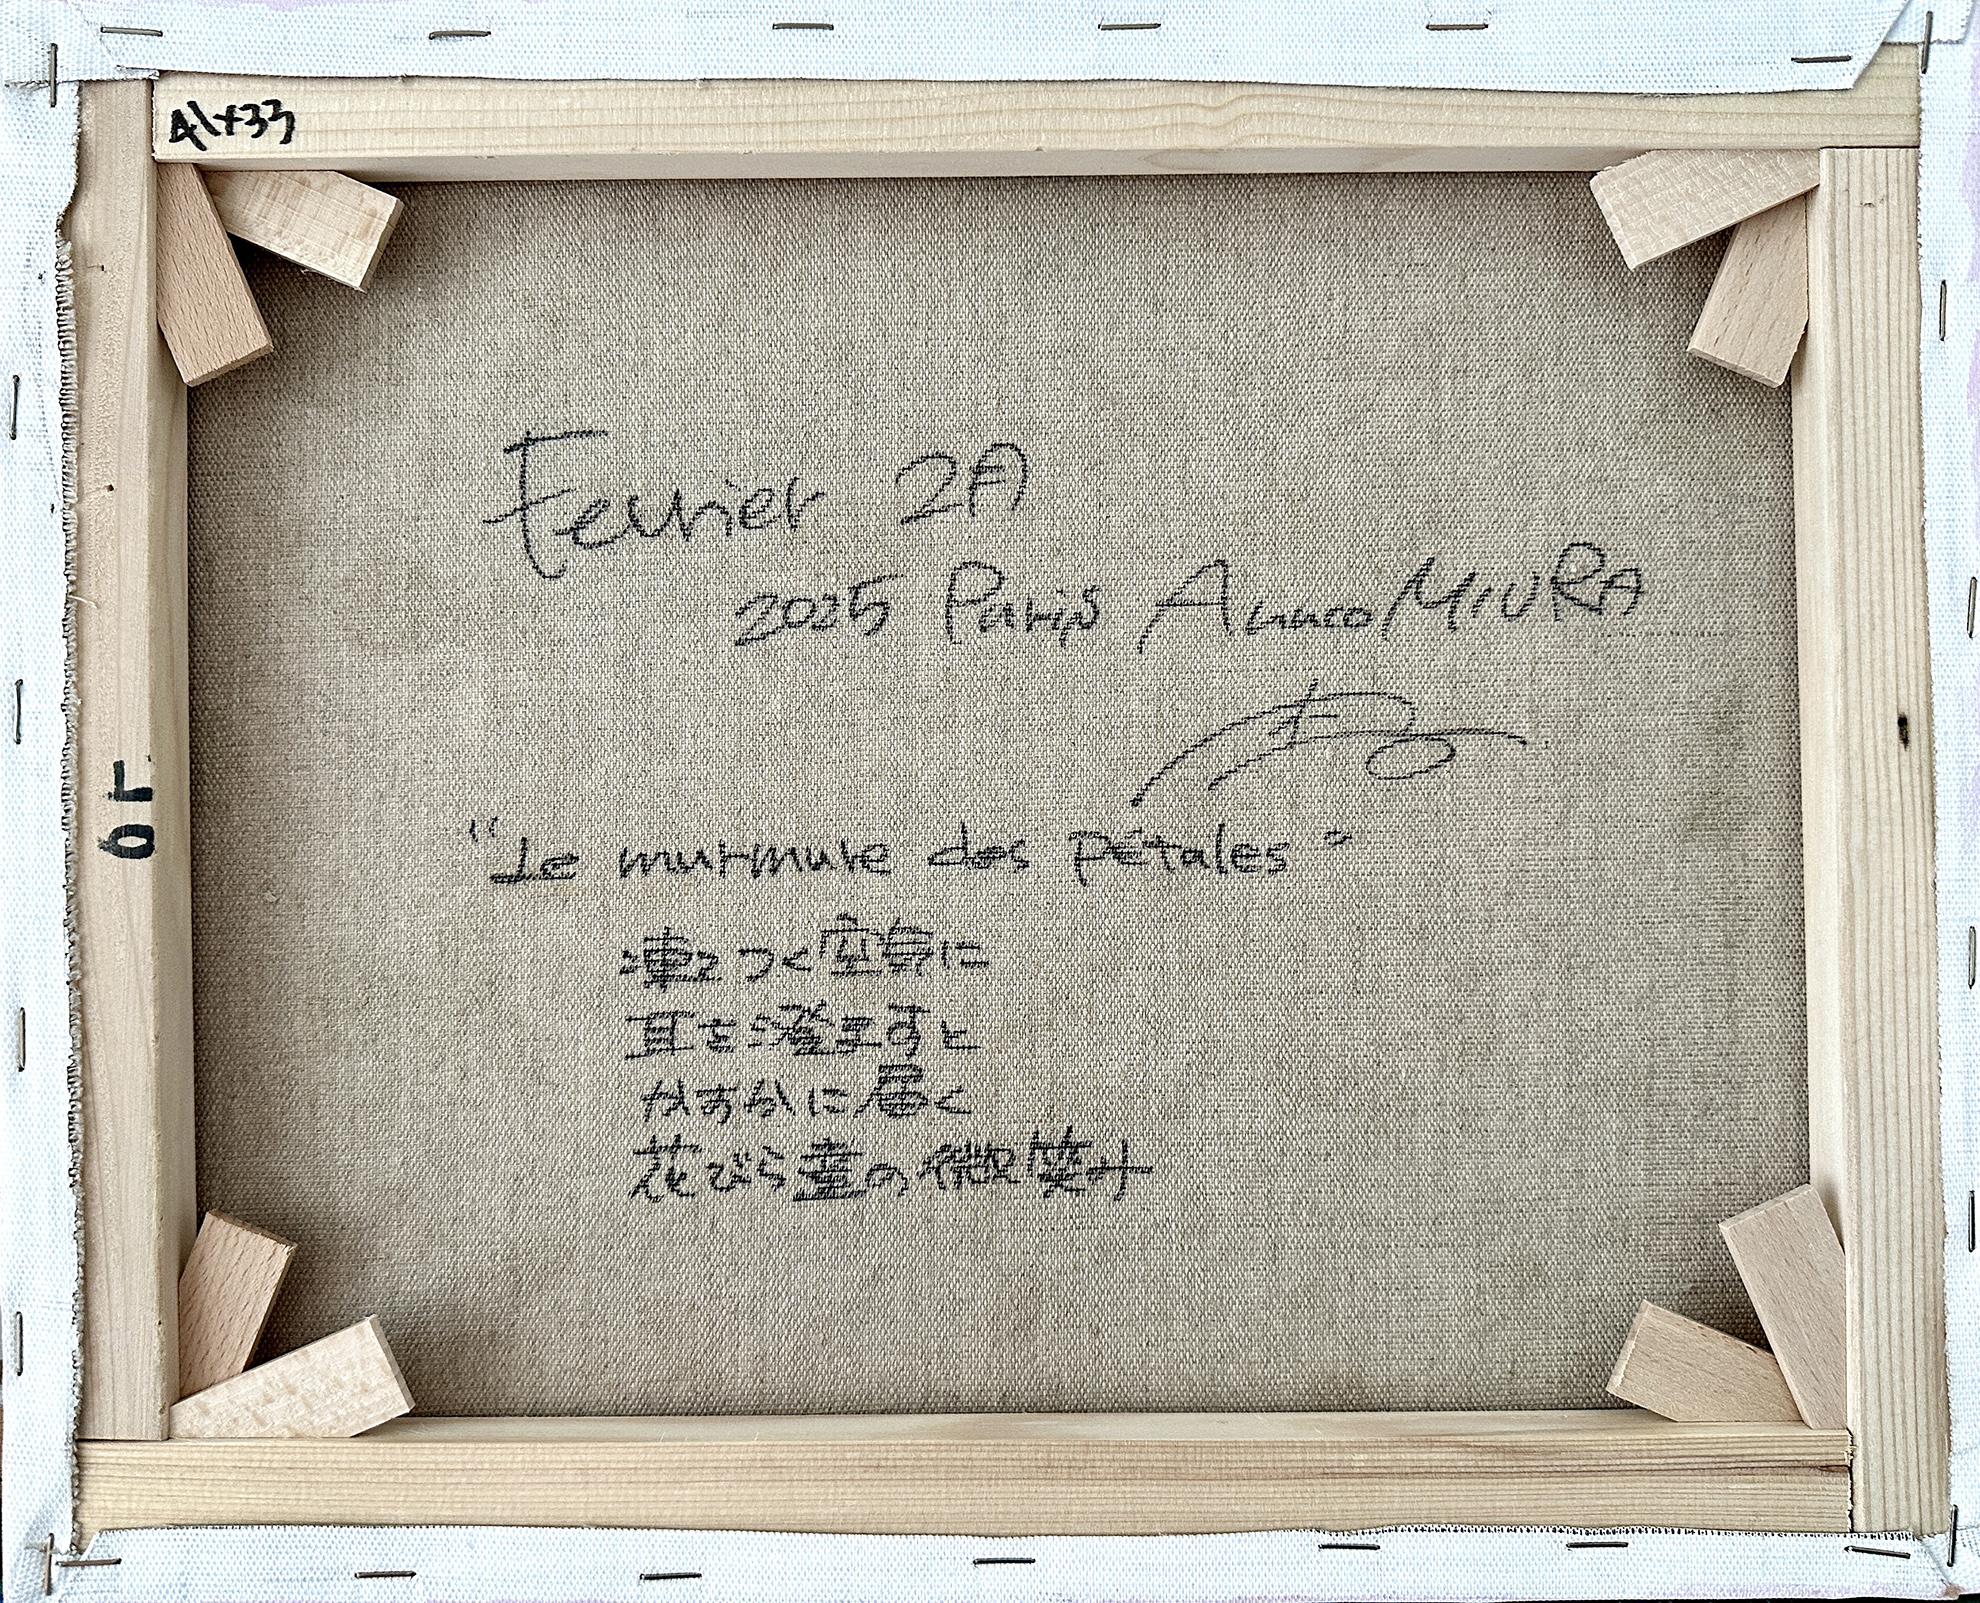 41x33
Fevrier 2月
2025 Paris MIURA
"Le murmure des pétales"
凍てつく空気に
耳を澄ますと
かすかに届く
花びら達の微笑み